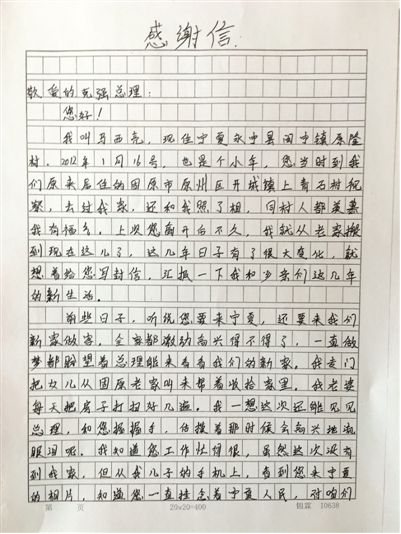 感谢信
敬爱的克强总理：
您好！
我叫马西亮，现住宁夏永宁县闽宁镇原隆
村。2012年1月16号，也是个小年，您当时到我
们原来居住的固原市原州区开城镇上青石村视
察，去过我家，还和我照了相，同村人都羡慕
我有福分。上次您离开后不久，我就从老家搬
到现在这儿了，这几年日子有了很大变化，就
想着给您写封信，汇报一下我和乡亲们这几年
的新生活。
前些日子，听说您要来宁夏，还要来我们
新家做客，全家都激动高兴得不得了，一直做
梦都盼望着总理能来看看我们的新家。我专门
把女儿从固原老家叫来帮着收拾家里。我老婆
每天把房子打扫好几遍。我一想这次还能见见
总理，和您握握手，估摸着那时候会高兴地流
眼泪呢。我知道您工作忙得很，虽然这次没有
到我家，但从我儿子的手机上，看到您来宁夏
的相片，知道您一直挂念着宁夏人民，对咱们
第 页 20×20=400 10638